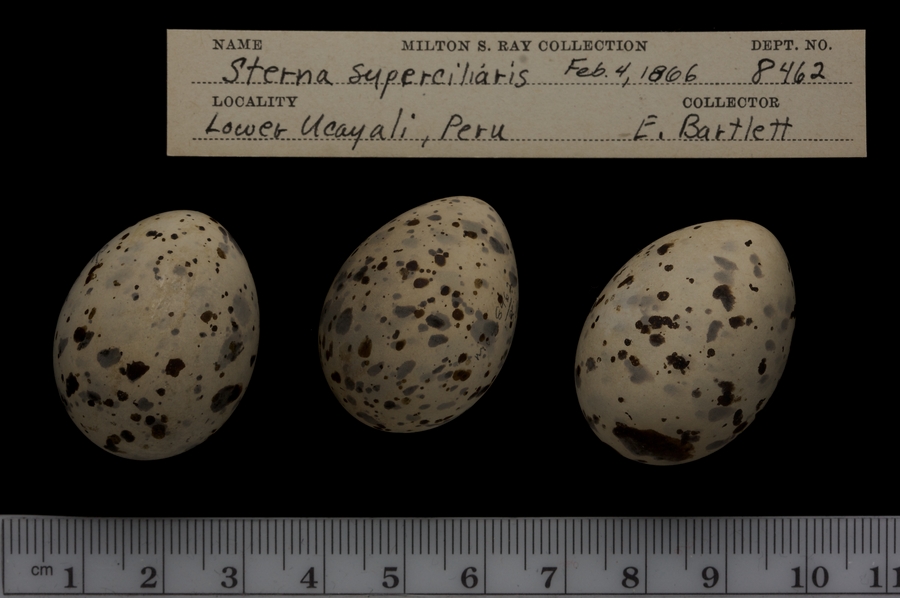 NAME MILTON S. RAY COLLECTION DEPT. NO.
Sterna superciliaris Feb. 4, 1866 8462
LOCALITY COLLECTOR
Lower Ucayali, Peru E. Bartlett
cm 1 2 3 4 5 6 7 8 9 10 11